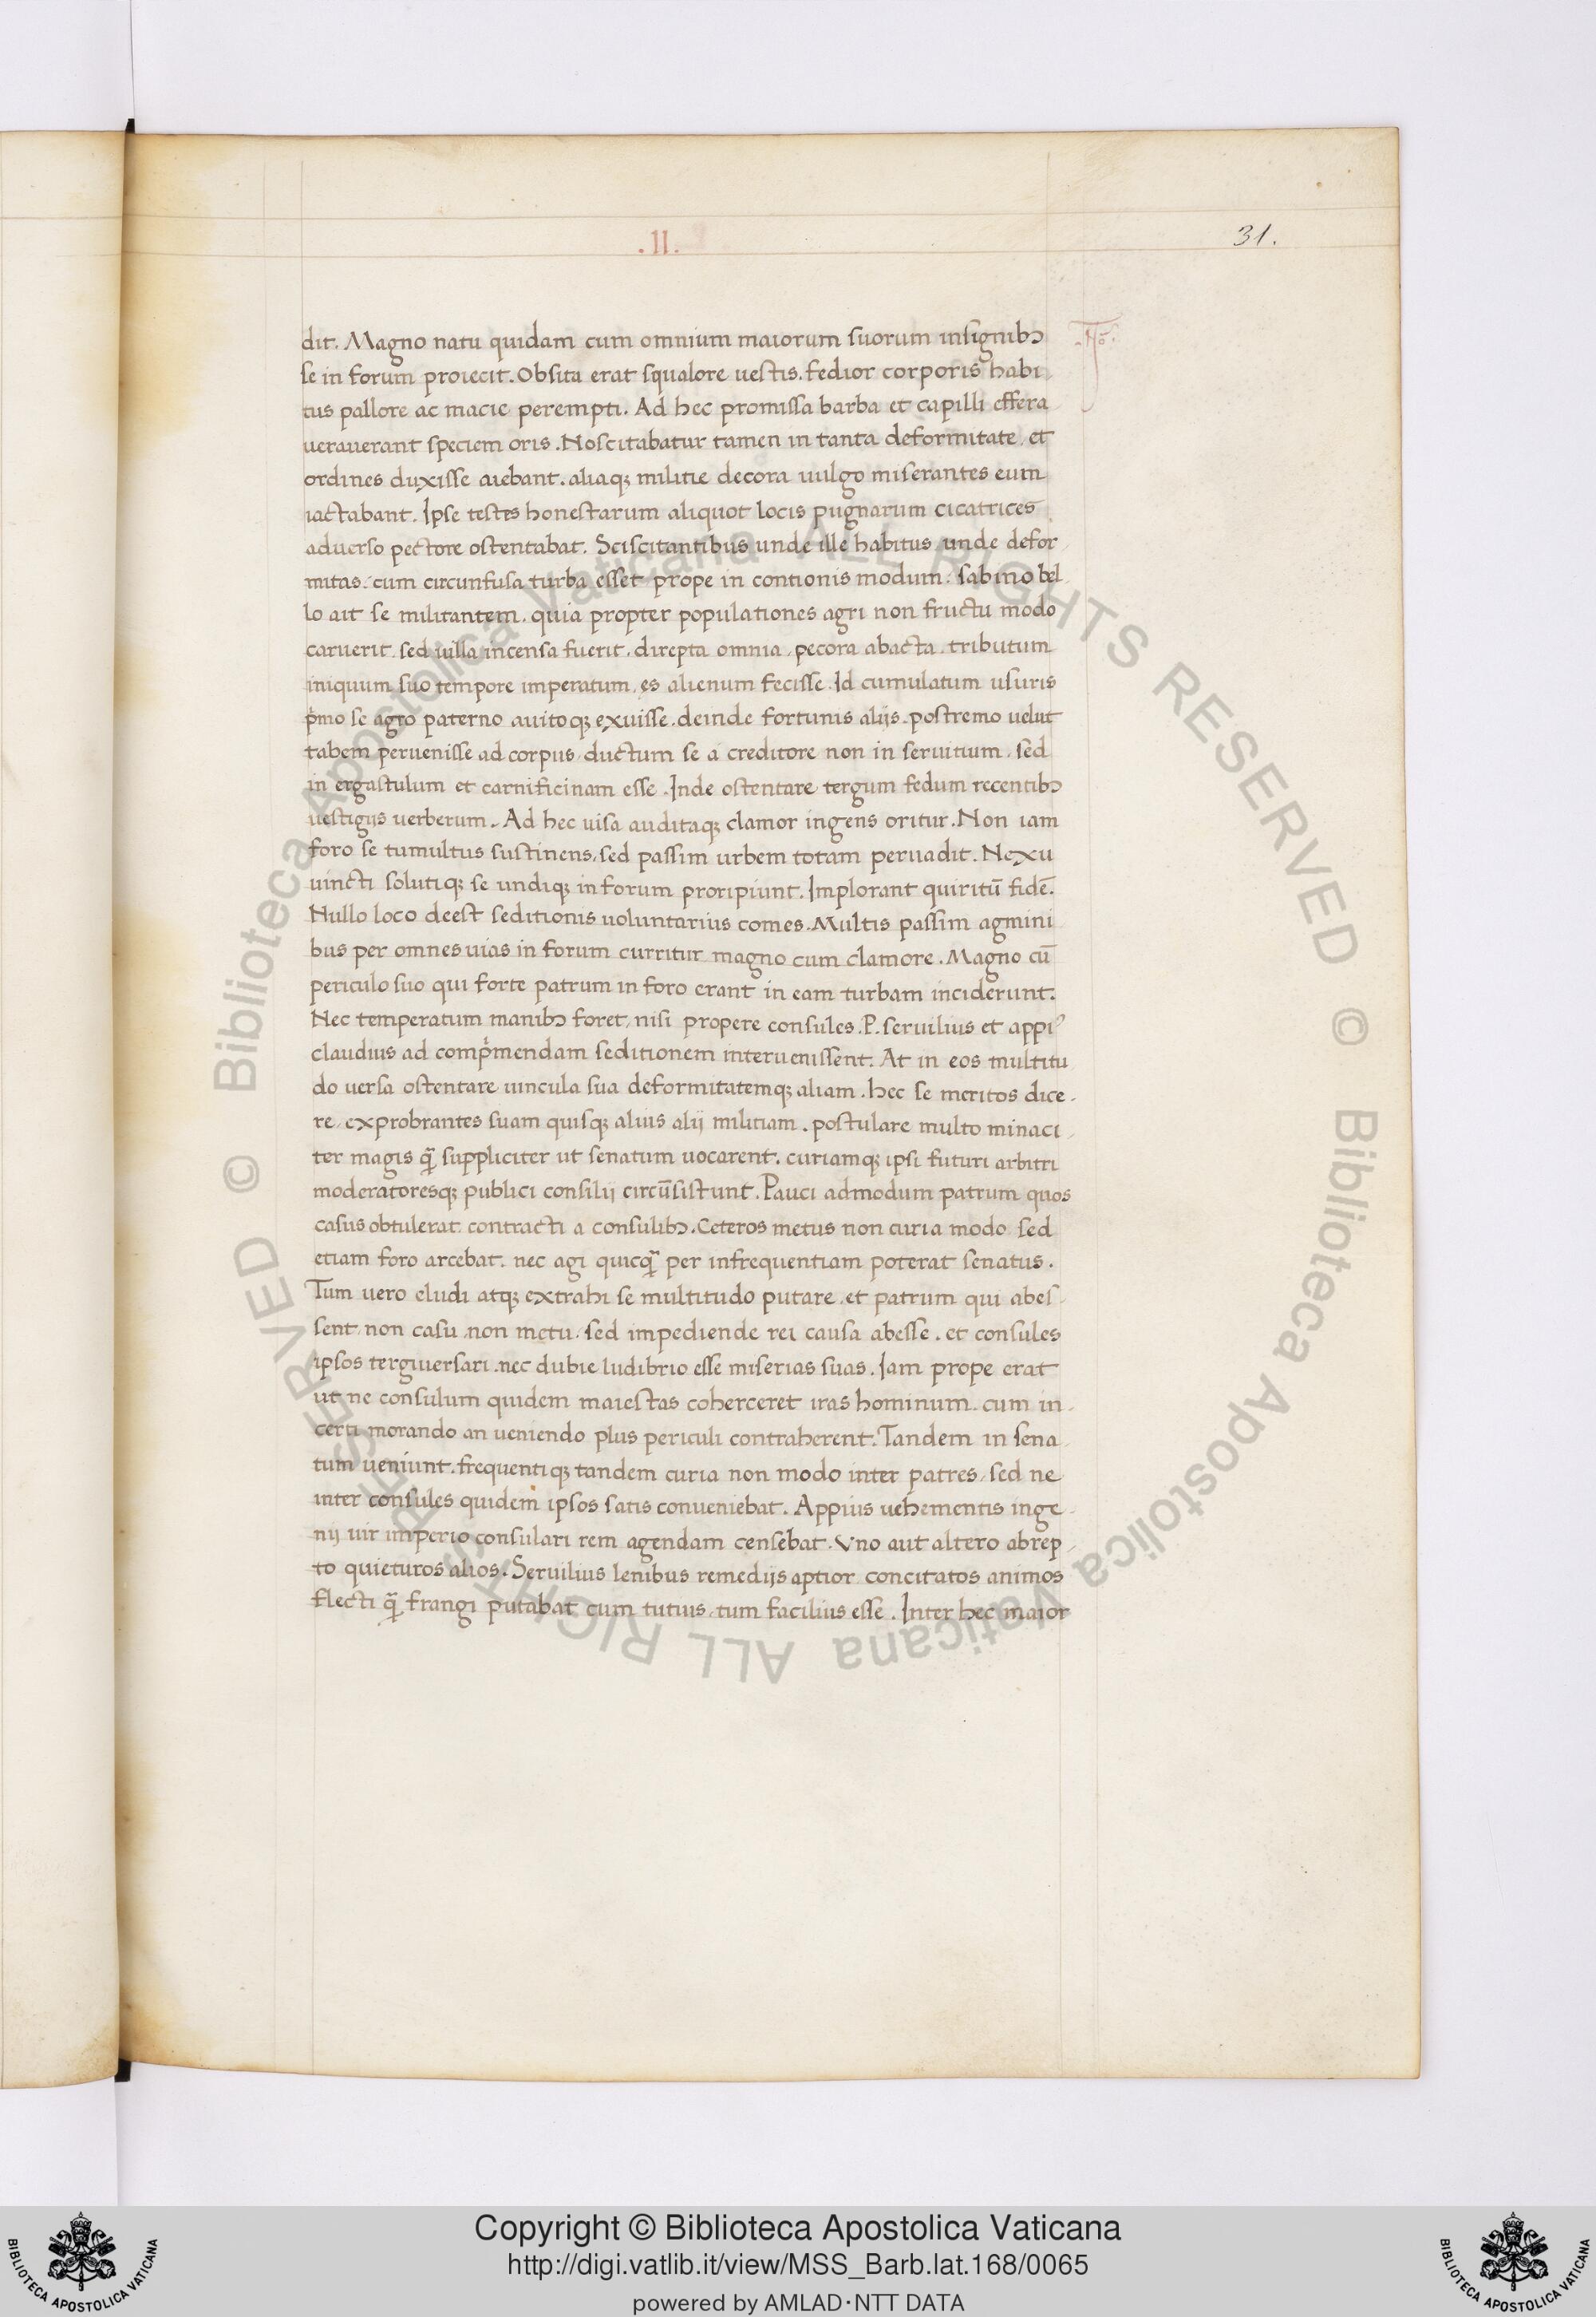 .II.
31.
dit. Magno natu quidam cum omnium maiorum suorum insignibꝫ
se in forum proiecit. Obsita erat squalore uestis. fedior corporis habi
tus pallore ac macie perempti. Ad hec promissa barba et capilli effera
uerauerant speciem oris. Noscitabatur tamen in tanta deformitate, et
ordines duxisse aiebant. aliaqꝫ militie decora uulgo miserantes eum
iactabant. Ipse testes honestarum aliquot locis pugnarum cicatrices
aduerso pectore ostentabat. Sciscitantibus unde ille habitus, unde defor
mitas. cum circunfusa turba esset prope in contionis modum. sabino bel
lo ait se militantem. quia propter populationes agri non fructu modo
caruerit. sed uilla incensa fuerit. direpta omnia, pecora abacta. tributum
iniquum suo tempore imperatum, ęs alienum fecisse. Id cumulatum usuris
p̍mo se agro paterno auitoqꝫ exuisse. deinde fortunis alijs. postremo uelut
tabem peruenisse ad corpus, ductum se a creditore non in seruitium, sed
in ergastulum et carnificinam esse. Inde ostentare tergum fedum recentibꝫ
uestigijs uerberum. Ad hec uisa auditaqꝫ clamor ingens oritur. Non iam
foro se tumultus sustinens, sed passim urbem totam peruadit. Nexu
uincti solutiqꝫ se undiqꝫ in forum proripiunt. Implorant quiritū fidē.
Nullo loco deest seditionis uoluntarius comes. Multis passim agmini
bus per omnes uias in forum curritur magno cum clamore. Magno cū
periculo suo qui forte patrum in foro erant in eam turbam inciderunt.
Nec temperatum manibꝫ foret, nisi propere consules. P. seruilius et appiꝰ
claudius ad comp̍mendam seditionem interuenissent. At in eos multitu
do uersa ostentare uincula sua deformitatemqꝫ aliam. hec se meritos dice
re, exprobrantes suam quisqꝫ alius alij militiam. postulare multo minaci
ter magis q̄ suppliciter ut senatum uocarent. curiamqꝫ ipsi futuri arbitri
moderatoresqꝫ publici consilij circūsistunt. Pauci admodum patrum quos
casus obtulerat contracti a consulibꝫ. Ceteros metus non curia modo sed
etiam foro arcebat. nec agi quicq̄ per infrequentiam poterat senatus.
Tum uero eludi atqꝫ extrahi se multitudo putare. et patrum qui abes
sent, non casu, non metu, sed impediende rei causa abesse. et consules
ipsos tergiuersari. nec dubie ludibrio esse miserias suas. Iam prope erat
ut ne consulum quidem maiestas coherceret iras hominum. cum in
certi morando an ueniendo plus periculi contraherent. Tandem in sena
tum ueniunt. frequentiqꝫ tandem curia non modo inter patres, sed ne
inter consules quidem ipsos satis conueniebat. Appius uehementis inge
nij uir imperio consulari rem agendam censebat. Vno aut altero abrep
to quieturos alios. Seruilius lenibus remedijs aptior concitatos animos
flecti q̄ frangi putabat cum tutius, tum facilius esse. Inter hec maior
© Biblioteca Apostolica Vaticana ALL RIGHTS RESERVED © Biblioteca Apostolica Vaticana ALL RIGHTS RESERVED
Copyright © Biblioteca Apostolica Vaticana
http://digi.vatlib.it/view/MSS_Barb.lat.168/0065
powered by AMLAD·NTT DATA
BIBLIOTECA APOSTOLICA VATICANA
BIBLIOTECA APOSTOLICA VATICANA